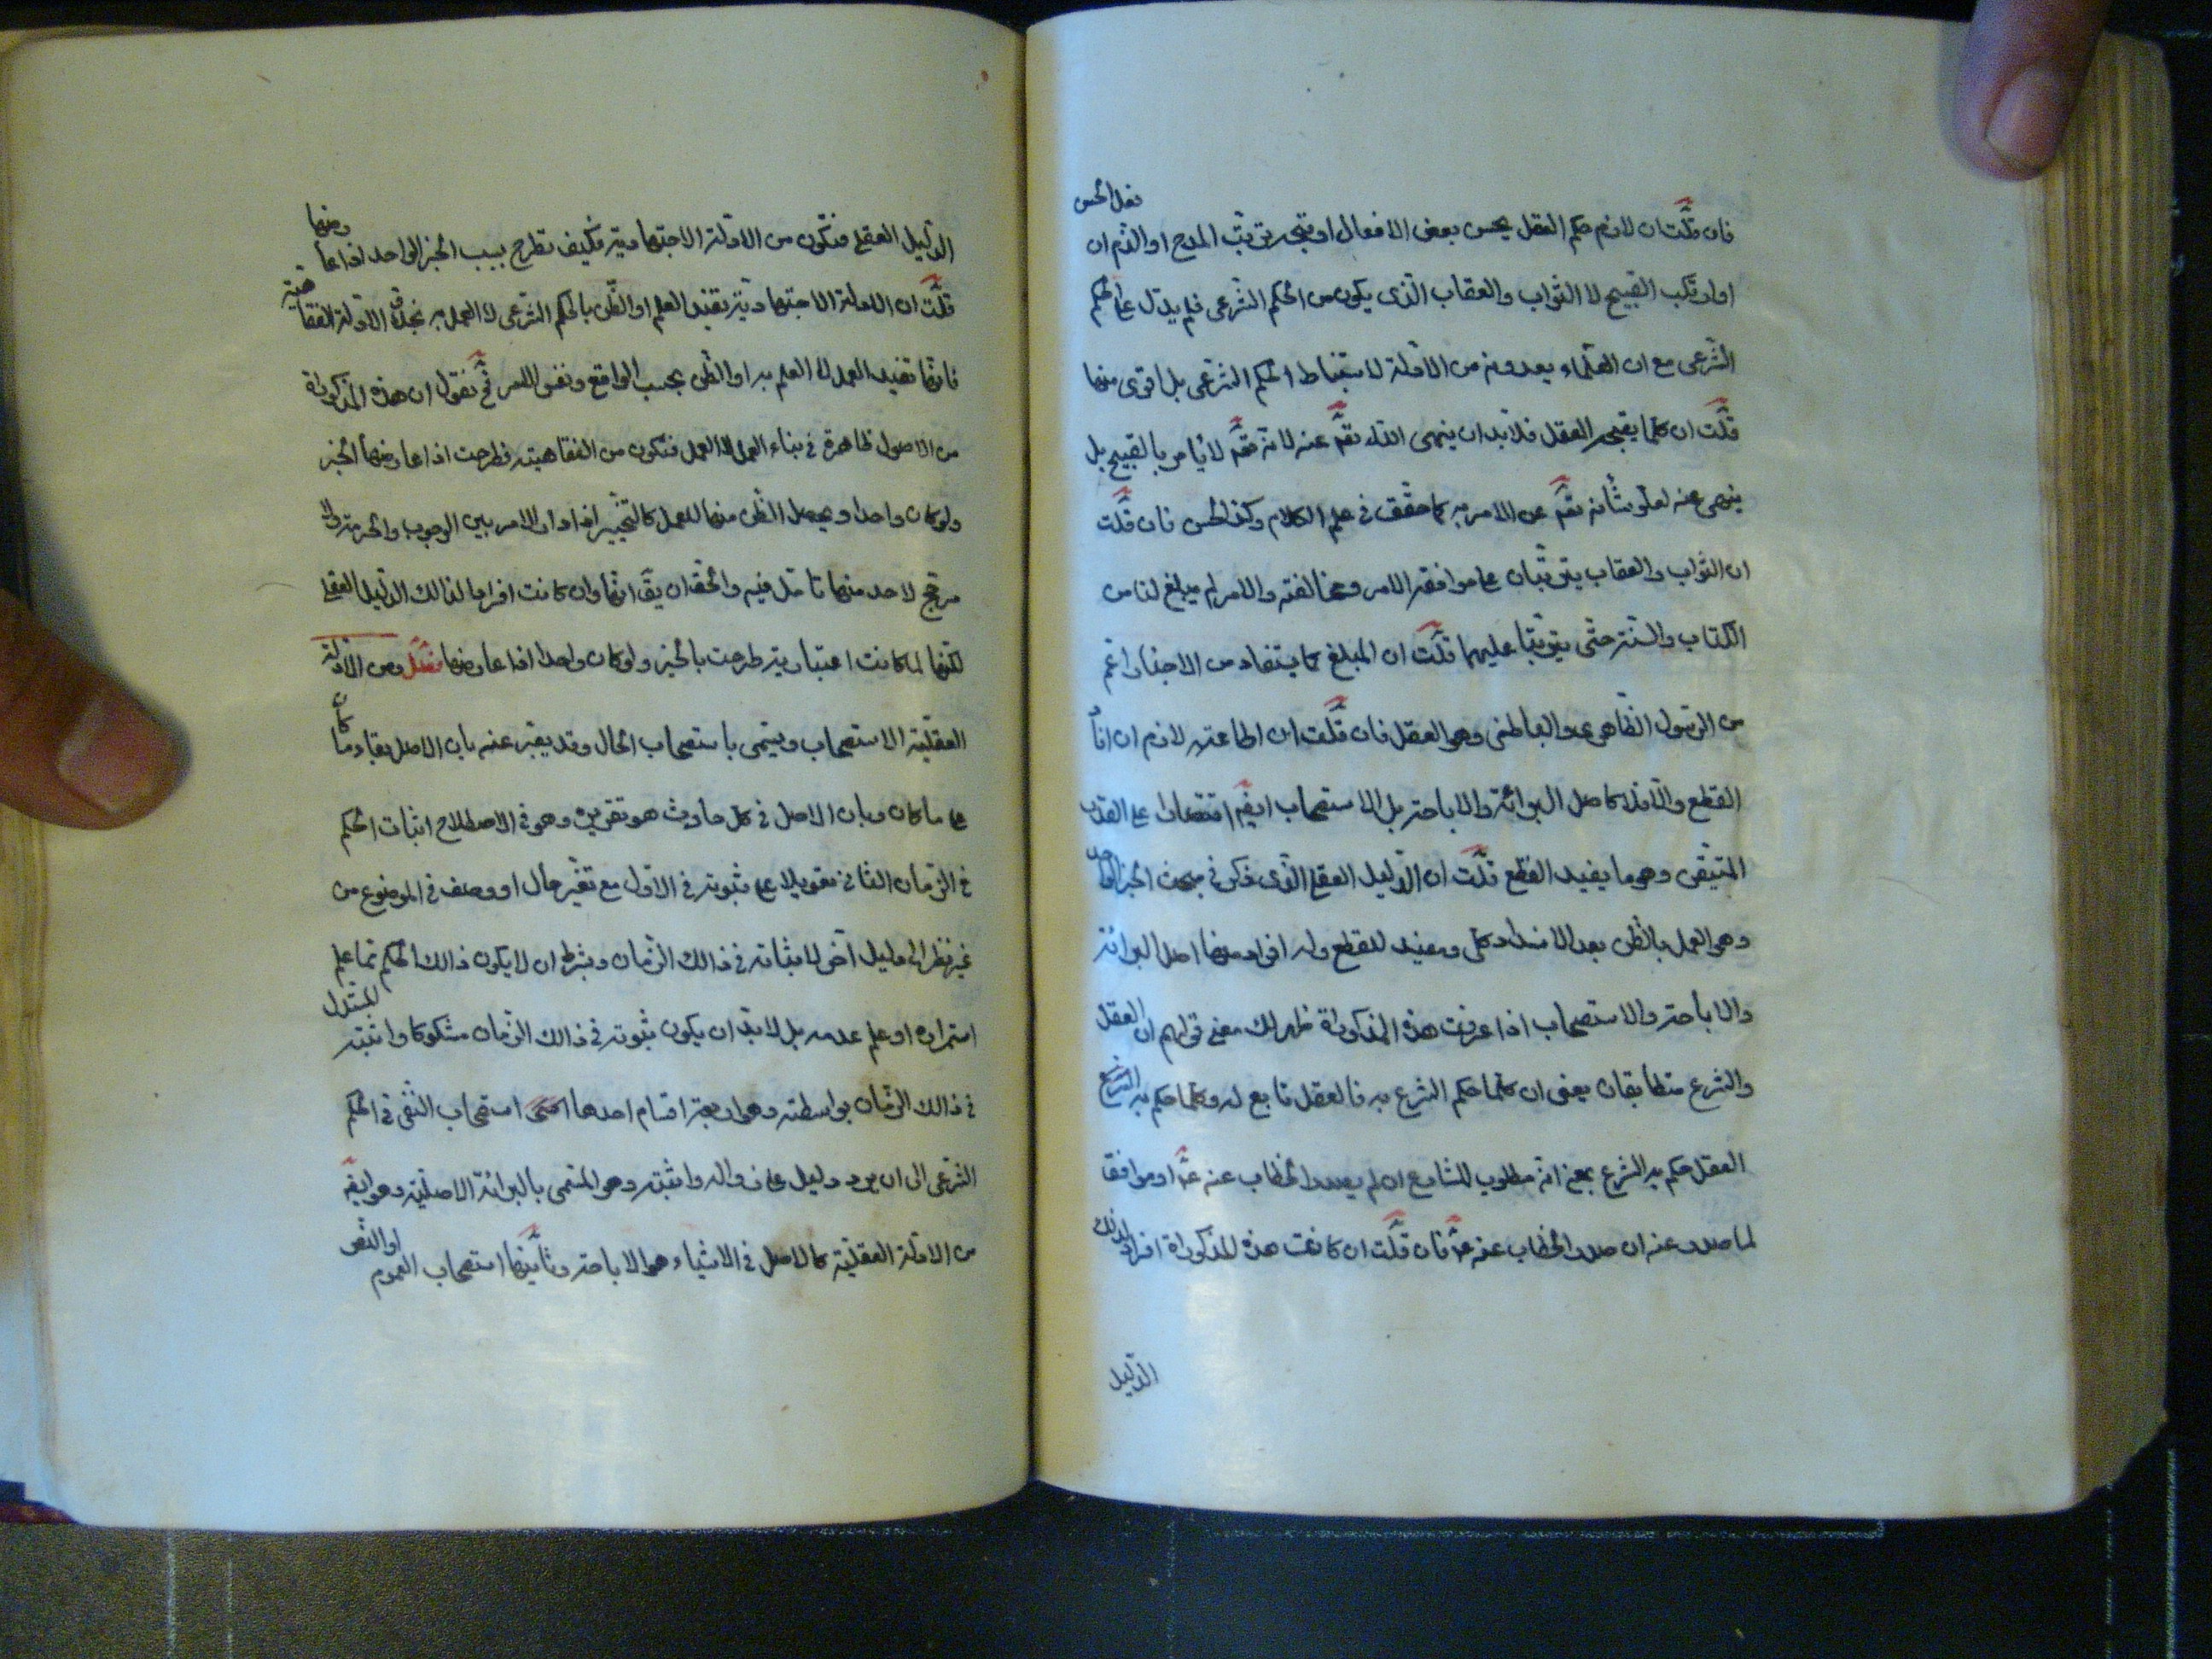 فان قلت ان لازم حكم العقل بحسن بعض الافعال او قبحه ترتب المدح او الذم ان فعل الحسن
او ارتكب القبيح لا الثواب والعقاب الذى يكون من الحكم الشرعى فلم يدل على الحكم
الشرعى مع ان العلماء يعدونه من الادلة لاستنباط الحكم الشرعى بل اقوى منها
قلت ان كلما يقبحه العقل فلابد ان ينهى الله تعم عنه لانه تعم لا يأمر بالقبيح بل
ينهى عنه لعلو شأنه تعم عن الامر به كما حقق فى علم الكلام وكذا الحسن فان قلت
ان الثواب والعقاب يترتبان على موافقة الامر ومخالفته والامر لم يبلغ لنا من
الكتاب والسنة حتى يترتبا عليهما قلت ان المبلغ كما يستفاد من الاخبار اعم
من الرسول الظاهرى والباطنى وهو العقل فان قلت ان اطاعته لازم ان افاد
القطع والا فلا كاصل البرائة والاباحة بل الاستصحاب ايضا اقتصارا على القدر
المتيقن وهو ما يفيد القطع قلت ان الدليل العقلى الذى ذكر فى مبحث الخبر الواحد
وهو العمل بالظن بعد الانسداد كلى ومفيد للقطع وله افراد منها اصل البرائة
والاباحة والاستصحاب اذا عرفت هذه المذكورة ظهر لك معنى قولهم ان العقل
والشرع متطابقان يعنى ان كلما حكم الشرع به فالعقل تابع له وكلما حكم به الشرع
العقل حكم به الشرع بمعنى انه مطلوب للشارع ان لم يصدر الخطاب عنه او موافقا
لما صدر عنه ان صدر الخطاب عنه فان قلت ان كانت هذه المذكورة افراد لذلك
الدليل
الدليل العقلى فتكون من الادلة الاجتهادية فكيف تطرح بسبب الخبر الواحد اذا عارضها
قلت ان الادلة الاجتهادية تفيد العلم او الظن بالحكم الشرعى لا العمل به بخلاف الادلة الفقاهتية
فانها تفيد العمل لا العلم به او الظن بحسب الواقع ونفس الامر فح نقول ان هذه المذكورة
من الاصول ظاهرة فى بناء العمل فتكون من الفقاهية فطرحت اذا عارضها الخبر
ولو كان واحدا ويحصل الظن منها للعمل كالتخيير اذا دار الامر بين الوجوب والحرمة ولا
مرجح لاحد منها تأمل فيه والحق ان يق انها وان كانت افرادا لذالك الدليل العقلى
لكنها لما كانت اعتبارية طرحت بالخبر ولو كان واحدا اذا عارضها فصل ومن الادلة
العقلية الاستصحاب ويسمى باستصحاب الحال وقد يعبر عنه بان الاصل بقاء ما كان
على ما كان وبان الاصل فى كل حادث هو تقريره وهو فى الاصطلاح اثبات الحكم
فى الزمان الثانى تعويلا على ثبوته فى الاول مع تغير حال او وصف فى الموضوع من
غير نظر الى دليل آخر لاثباته فى ذالك الزمان وشرط ان لا يكون ذالك الحكم مما علم
استمراره او علم عدمه بل لابد ان يكون ثبوته فى ذالك الزمان مشكوكا واثبته المستدل
فى ذالك الزمان بواسطته وهو اربعة اقسام احدها استصحاب النفى فى الحكم
الشرعى الى ان يرد دليل على زواله واثبته وهو المسمى بالبرائة الاصلية وهو ايضا
من الادلة العقلية كالاصل فى الاشياء هو الاباحة وثانيها استصحاب العموم او النص